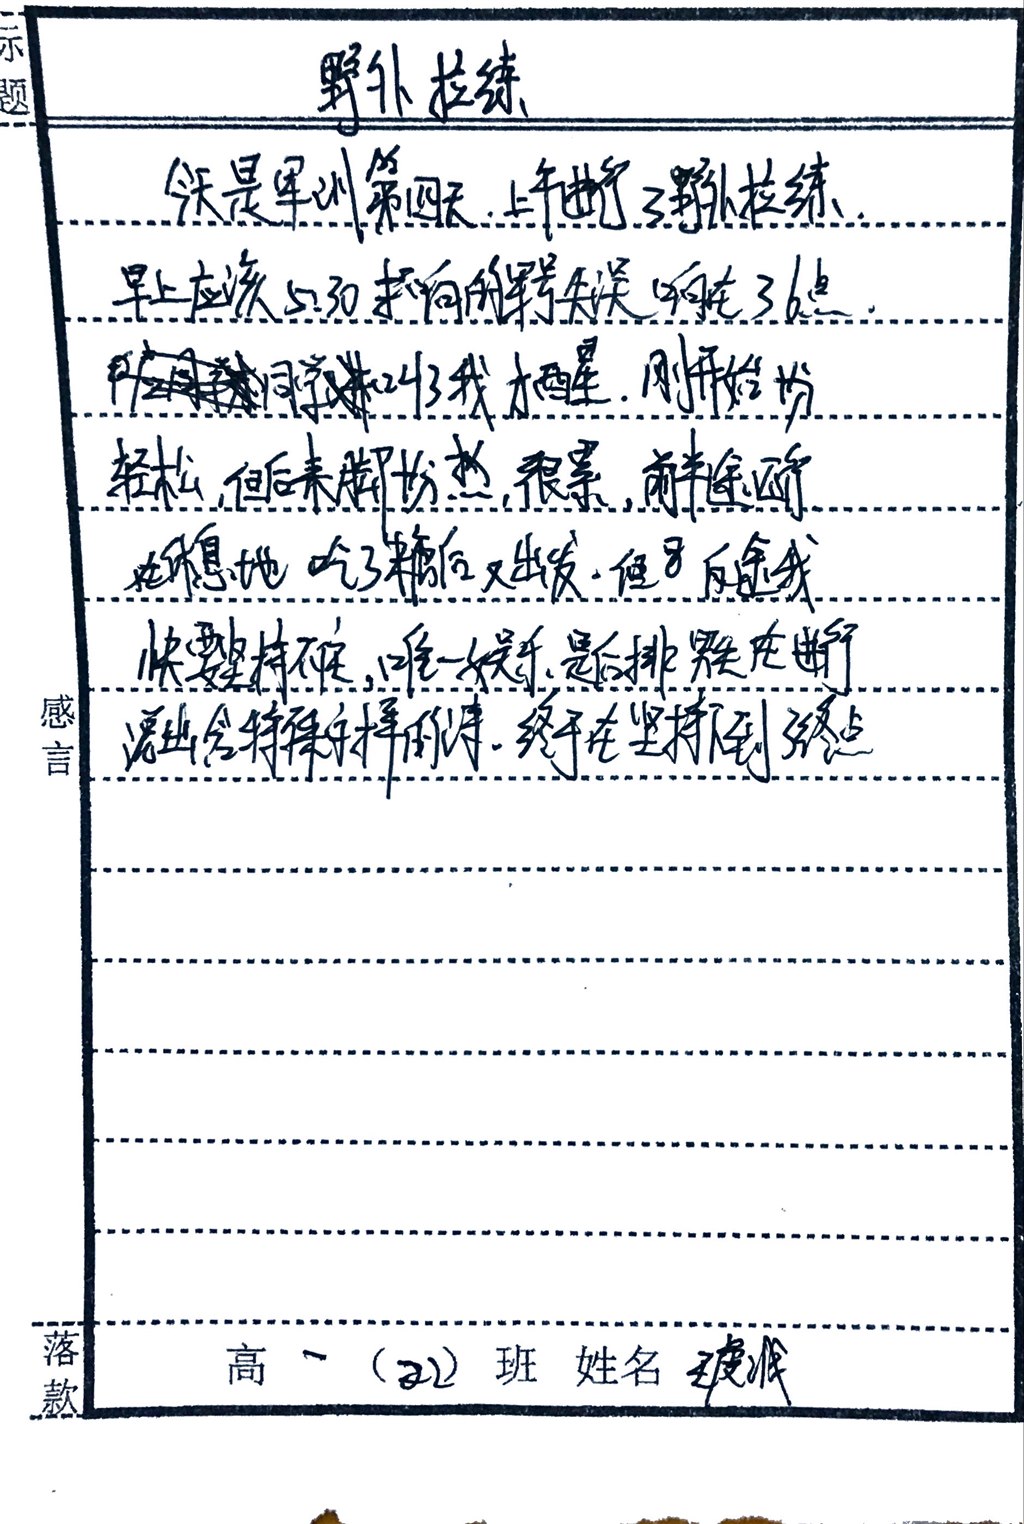 标题
野外拉练
今天是军训第四天.上午进行了野外拉练.
早上应该5:30 响的军号失误响在了6点.
同学 叫了我才醒.刚开始
轻松,但后来脚 热,很累,前半途
在休息地 吃了糖后又出发.但 返途我
快要坚持不住,唯一娱乐是后排男生在进行
终于在坚持下到了终点
感言
落款
高一(22)班 姓名 王